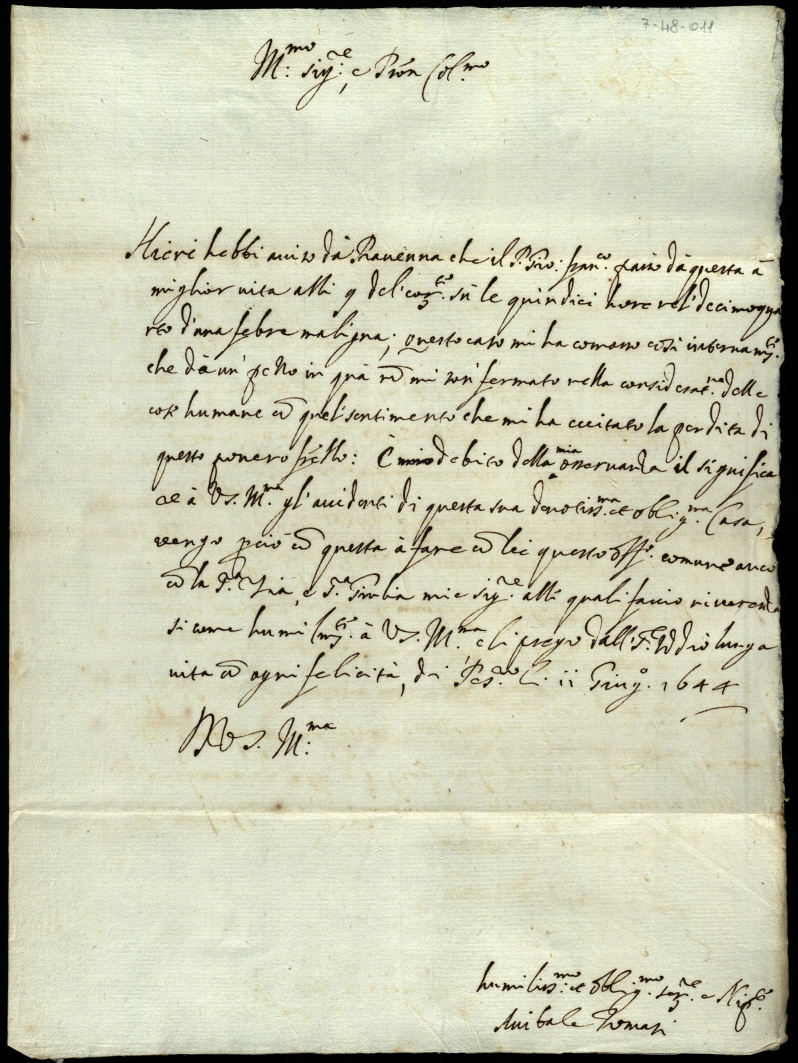 7-48-011
M:mo sig:re, e Pron Col:mo
Hieri hebbi auiso dà Rauenna che il P. Gio: Fran:co passò dà questa à
miglior uita alli 9 del cor:te sù le quindici hore nel decimoqua
rto d'una febre maligna; questo caso mi ha comosso così internam:te
che dà un' pezzo in quà nõ mi son' fermato nella considerat:ne delle
cose humane cõ quel sentimento che mi ha eccitato la perdita di
questo pouero frello: È debito della mia osseruanza il significa
re à VS. M:ma gl'accidenti di questa sua deuotiss:ma et oblig:ma Casa,
uengo perciò cõ questa à fare cõ lei questo off:o comune anco
cõ la S:ra Zia, e S:ra Giulia mie sig:re alle quali faccio riuerenza
si come humilm:te à VS. M:ma e li prego dall S. Iddio lunga
uita cõ ogni felicità, di Pes:ro li ii Giug:o 1644
D VS. M:ma
humiliss:mo et oblig:mo ser:re e Nip:te
Anibale Tomasi